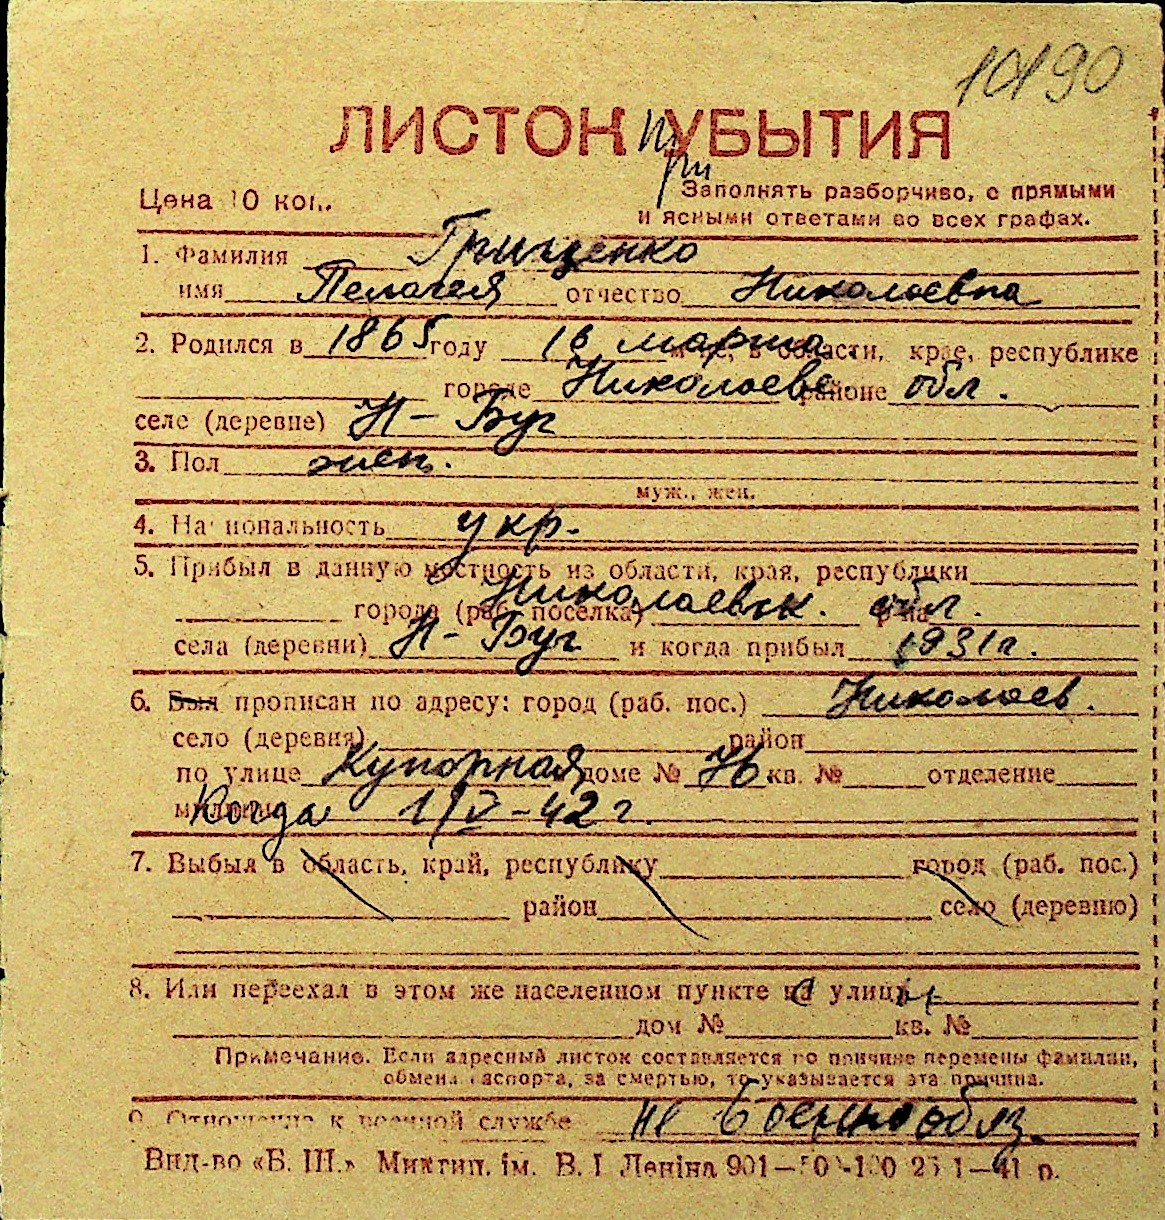 10190
ЛИСТОК при УБЫТИЯ
Цена 10 коп.
Заполнять разборчиво, с прямыми
и ясными ответами во всех графах.
1. Фамилия Грищенко
имя Пелагея отчество Николаевна
2. Родился в 1865 году 16 марта м-це, в области, крае, республике
городе Николаеве районе обл.
селе (деревне) Н-Буг
3. Пол жен.
муж., жен.
4. Национальность укр.
5. Прибыл в данную местность из области, края, республики
города (раб. поселка) Николаевск. обл. р-на
села (деревни) Н-Буг и когда прибыл 1931г.
6. Был прописан по адресу: город (раб. пос.) Николаев.
село (деревня) район
по улице Купорная доме № 76 кв. № отделение
милиции Когда 1/V-42 г.
7. Выбыл в область, край, республику город (раб. пос.)
район село (деревню)
8. Или переехал в этом же населенном пункте на улицу
дом № кв. №
Примечание. Если адресный листок составляется по причине перемены фамилии,
обмена паспорта, за смертью, то указывается эта причина.
9. Отношение к военной службе не военнообяз.
Вид-во «Б. Ш.» Миктип. ім. В. І Леніна 901— 25 1—41 р.